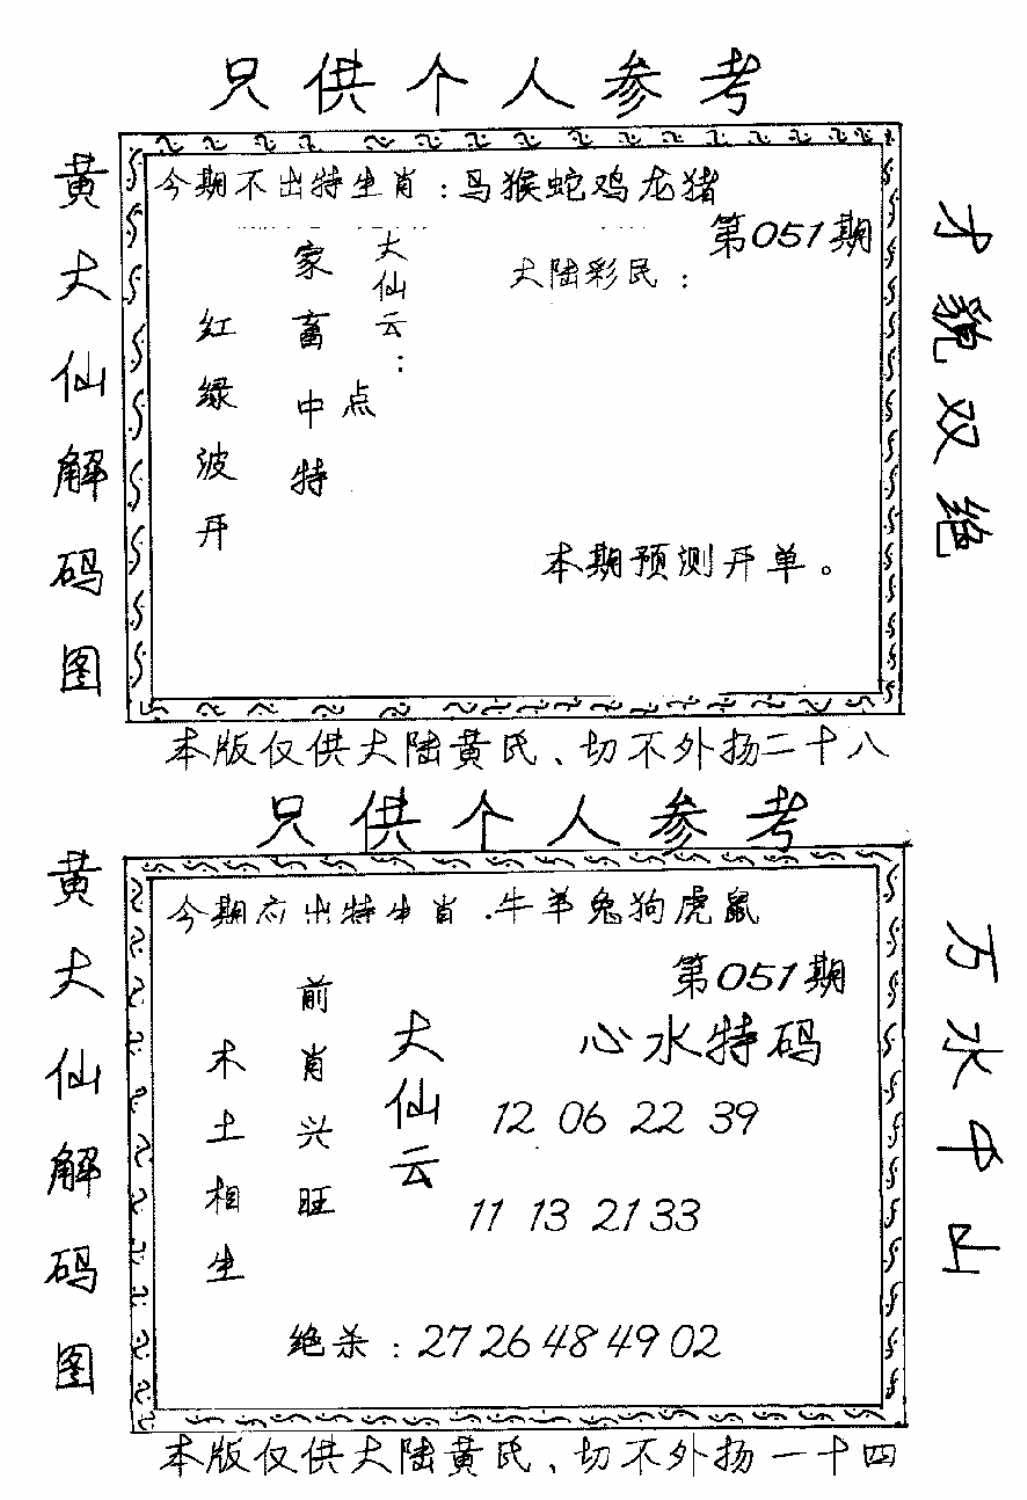 只供个人参考
黄大仙解码图
今期不出特生肖:马猴蛇鸡龙猪
第051期
大陆彩民:
大仙云:
点
家畜中特
红绿波开
本期预测开单。
才貌双绝
本版仅供大陆黄氏、切不外扬二十八
只供个人参考
黄大仙解码图
今期应出特生肖.牛羊兔狗虎鼠
第051期
心水特码
大仙云
前肖兴旺
木土相生
12 06 22 39
11 13 21 33
绝杀:27 26 48 49 02
万水千山
本版仅供大陆黄氏、切不外扬一十四